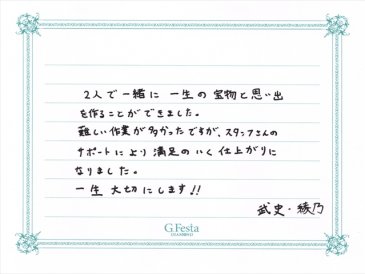 2人で一緒に 一生の宝物と思い出
を作ることができました。
難しい作業が多かったですが、スタッフさんの
サポートにより満足のいく仕上がりに
なりました。
一生 大切にします!!
武史・綾乃
G.Festa
DIAMOND